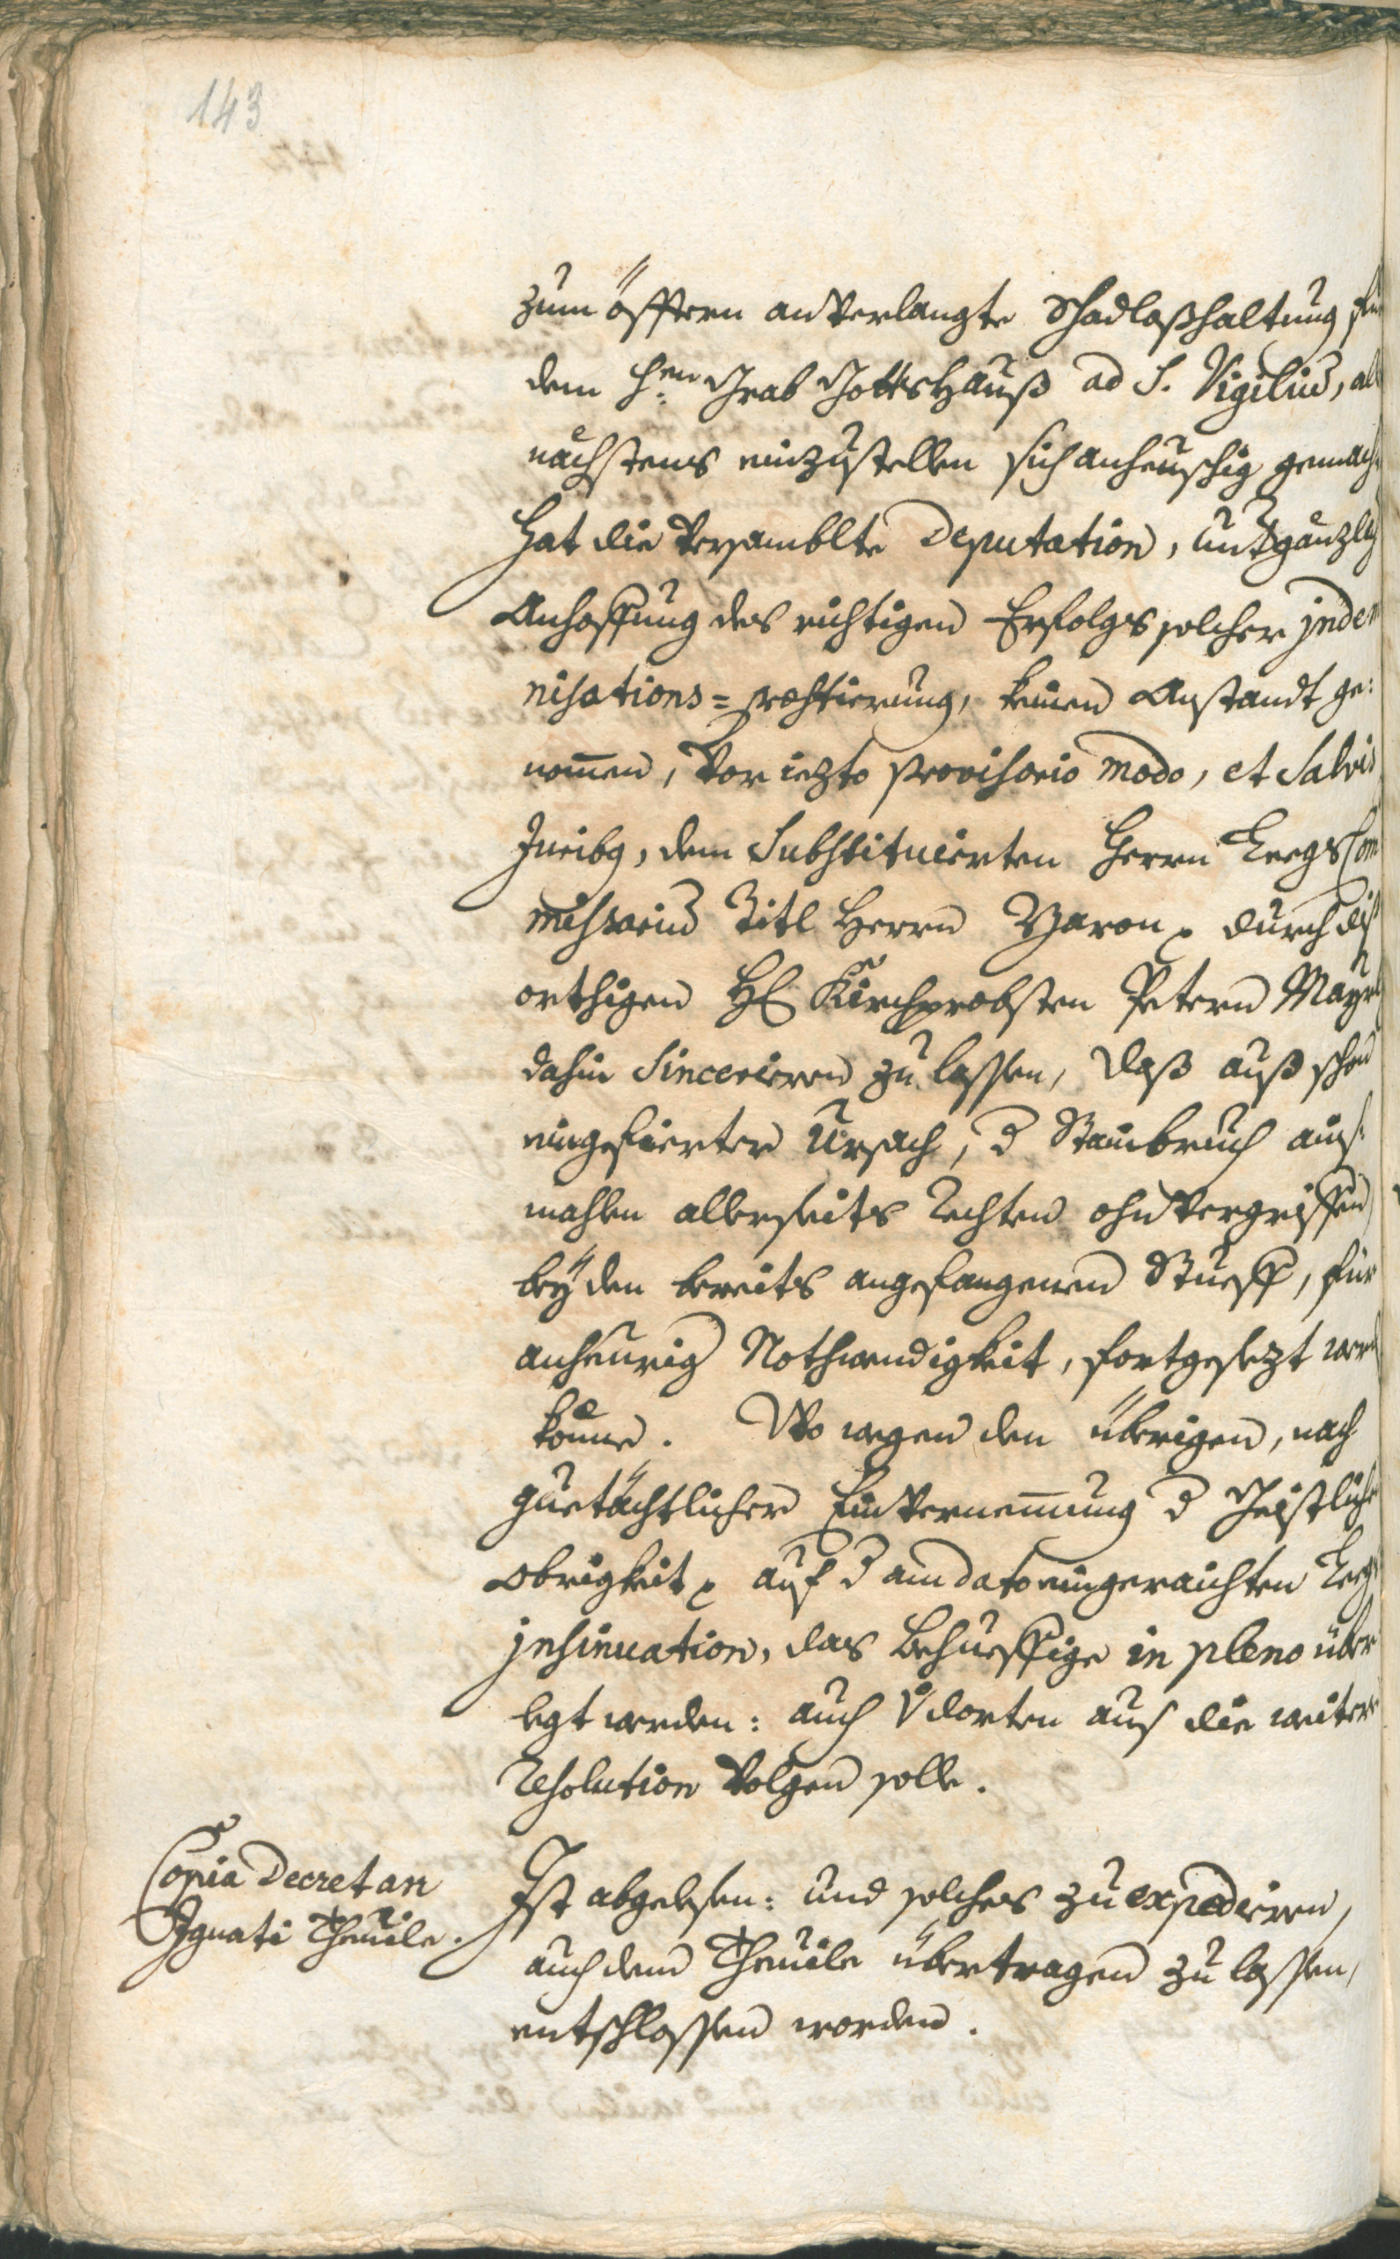 143
zum öfftern an verlangte Schadloßhaltung
dem H:en Grab Gottshauß ad S. Vigiliu̅,
nächstens einzustellen sich anheuschig gemach
hat die Versamblte Deputation, mit gänzlich
Anhoffung des richtigen Erfolgs solcher jndem
nisations=praestierung, keinen Anstandt ge:
nomen, vor iezto provisorio modo, et Salvis
Juribq, dem Substituierten Herrn Com
missariu̅ Titl Herrn durch dis
orthigen Kirchprobsten Petern Mayrl
dahin Sincerieren zu lassen, daß auß schon
eingefierter Ursach, d Stainbruch ains
mahlen allerseits rechten ohnvergriffen
bey den bereits angefangenen Stueff, für
anheurig Nothwendigkeit, fortgesezt werd
könne. Wo wegen den übrigen, nach
guetächtlicher Einvernemung d Geistlich
Obrigkeit auf d am dato eingeraichten
jnsinuation, das behueffige in pleno über
legt werden: auch dorten aus die weitere
resolution volgen solle.
Copia Decret an
Ignati Theuile.
Ist abgelesen: und solches zu expedieren,
auch dem Theuile übertragen zu lassen,
entschlossen worden.